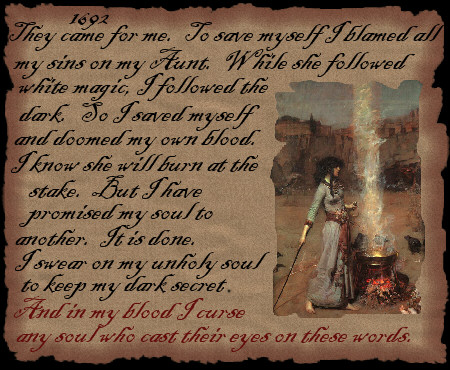 1692
They came for me. To save myself I blamed all
my sins on my Aunt. While she followed
white magic, I followed the
dark. So I saved myself
and doomed my own blood.
I know she will burn at the
stake. But I have
promised my soul to
another. It is done.
I swear on my unholy soul
to keep my dark secret.
And in my blood I curse
any soul who cast their eyes on these words.